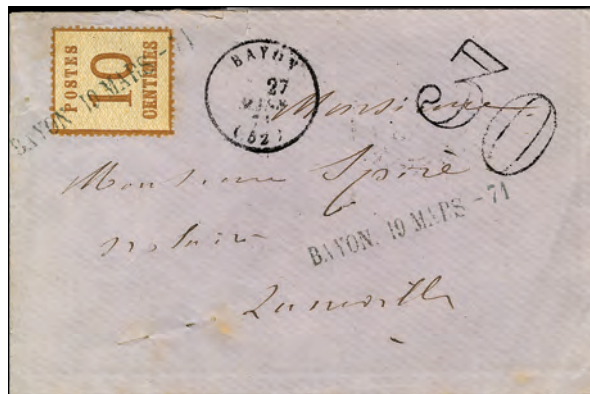 POSTES
10
CENTIMES
BAYON. 19 MARS - 71
BAYON
27
MARS
71
(52)
30
Monsieur
Monsieur Spire
notaire
BAYON. 19 MARS - 71
Lunéville